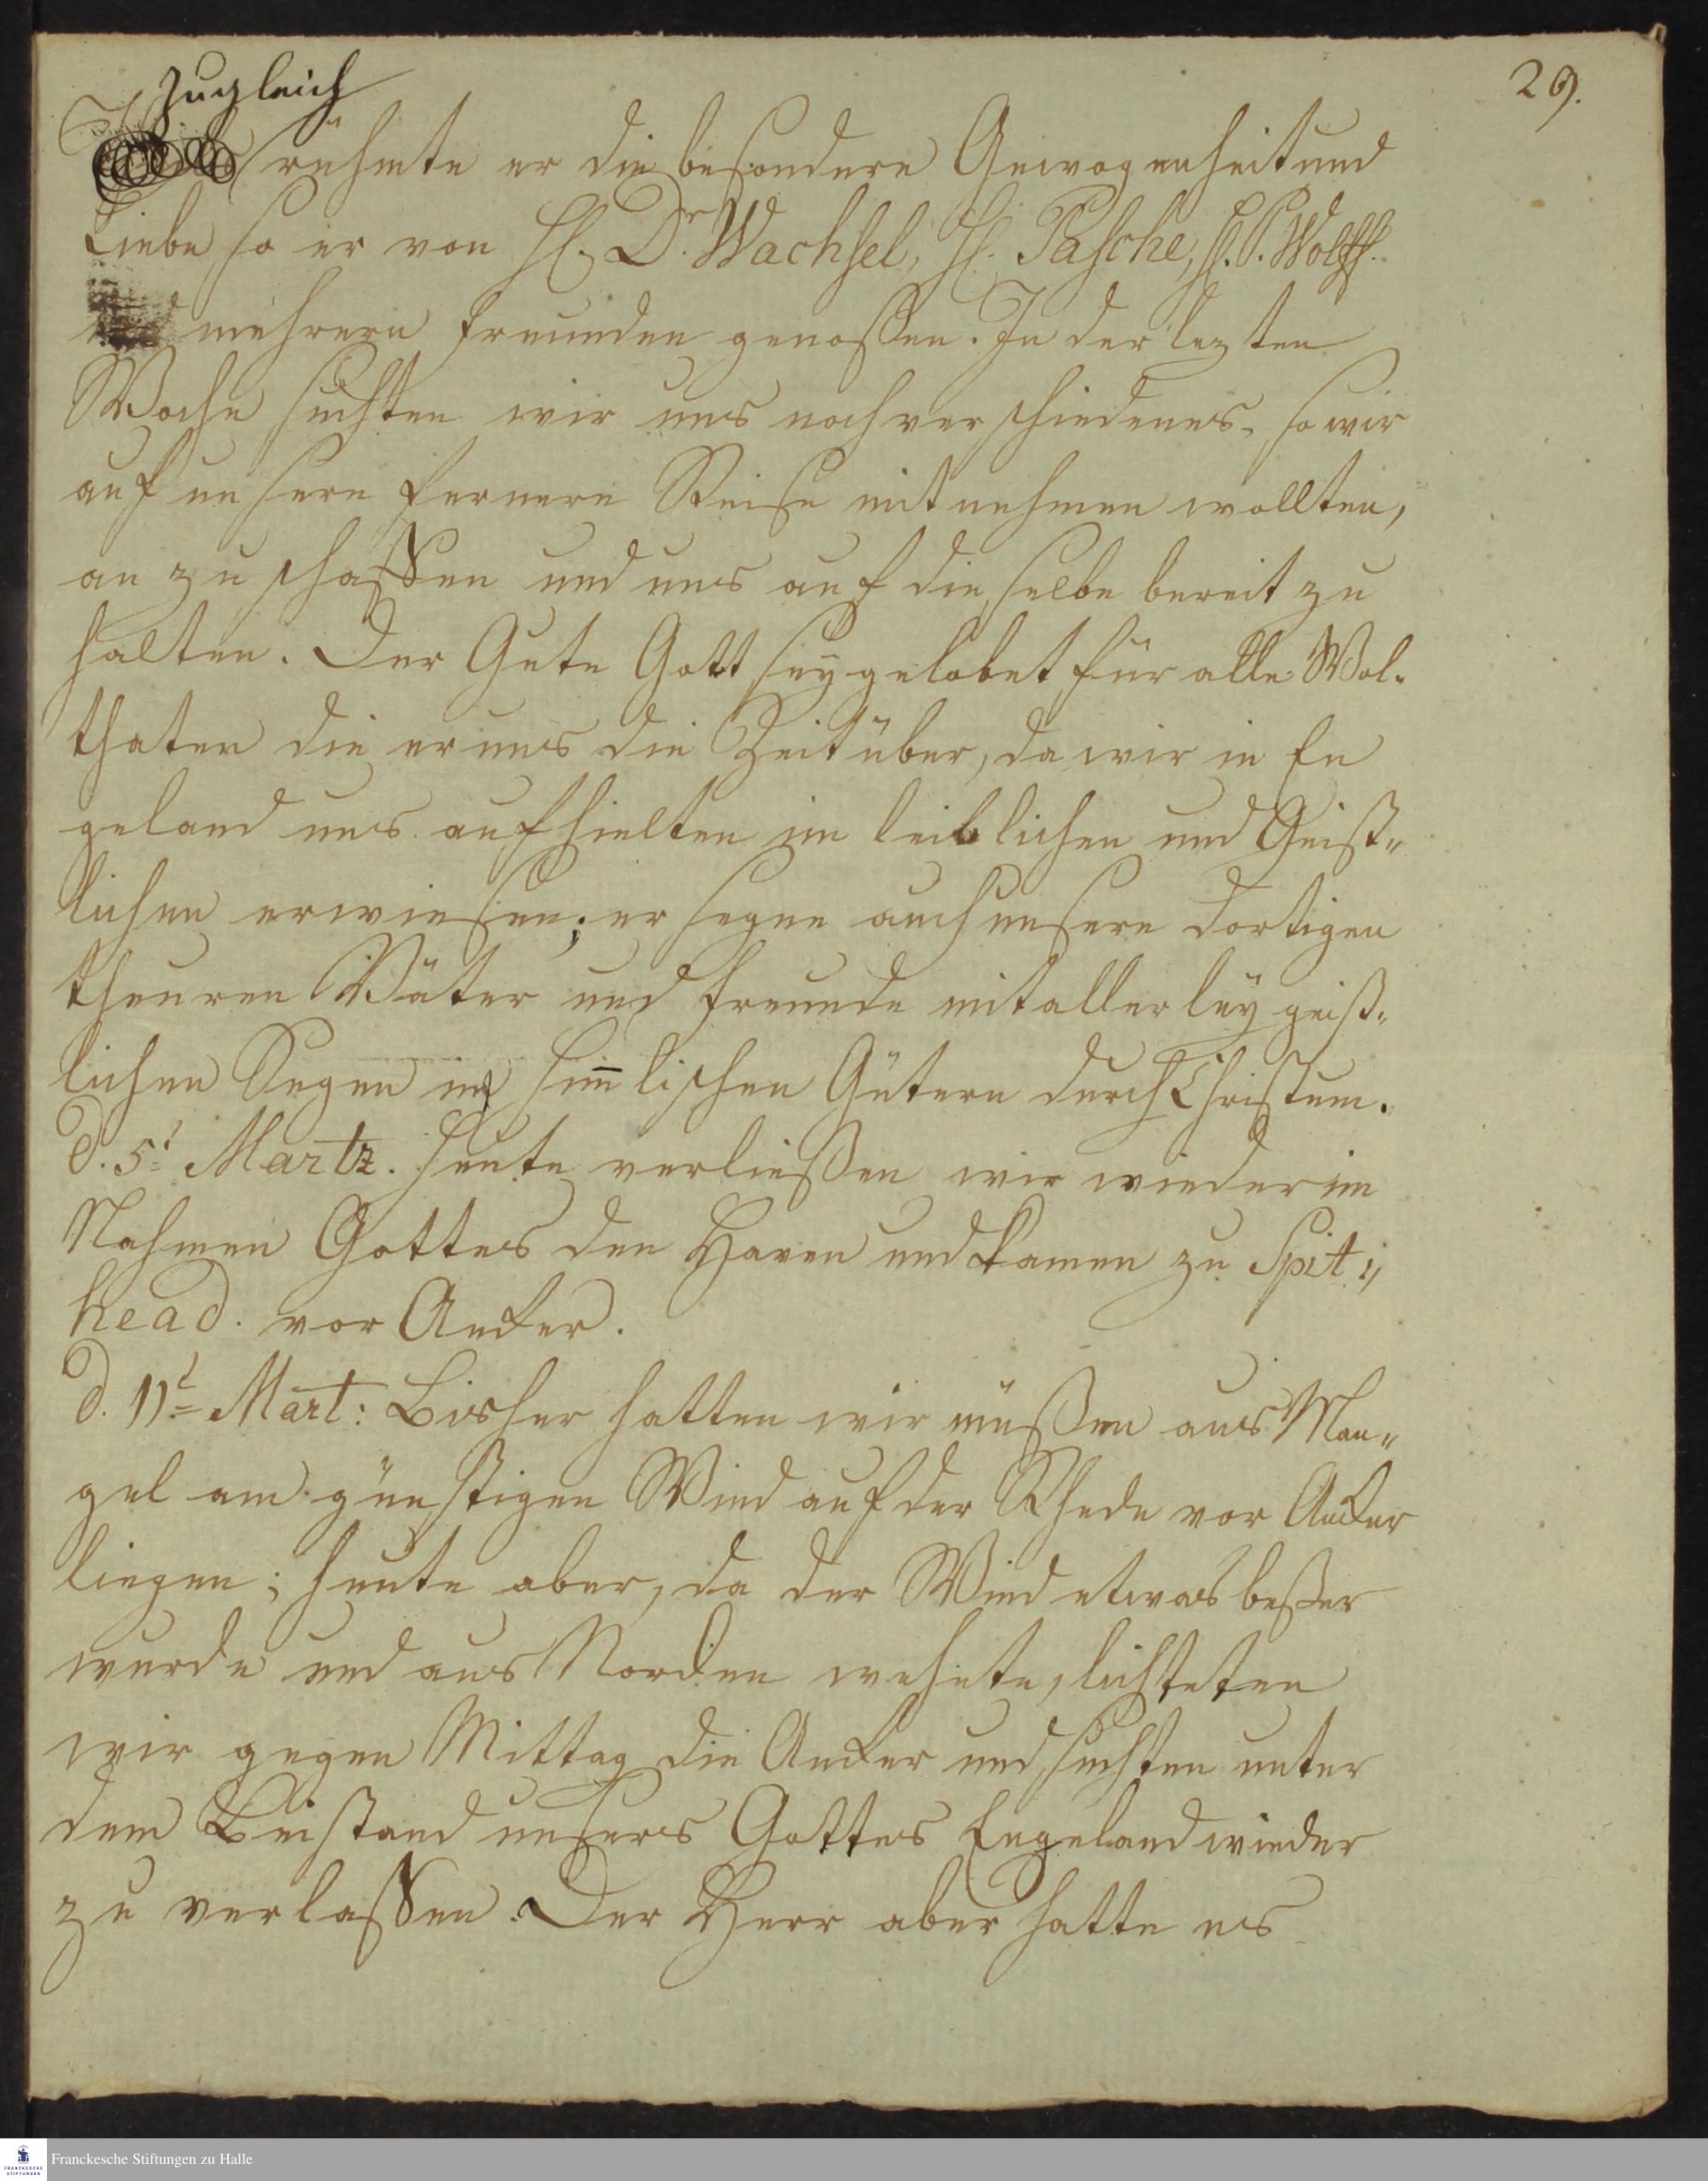 29.
zugleich
rühmte er die besondere Gewogenheit und
Liebe, so er von H. Dr. Wachsel, H. Pasche, H. P. Wolff.
und mehrern Freunden genossen. In der lezten
Woche suchten wir uns noch verschiedenes, so wir
auf unsern fernern Reise mitnehmen wollten,
anzuschaffen und uns auf dieselbe bereit zu
halten. Der Gute Gott sey gelobet für alle Wol-
thaten die er uns die Zeit über, da wir in En
geland uns aufhielten im leiblichen und Geist-
lichen erwiesen; er segne auch unsere dortigen
theuren Väter und Freunde mit allerley geist-
lichen Segen in him̅lischen Gütern durch Christum.
d. 5t Martz. Heute verließen wir wieder im
Nahmen Gottes den Haven und kamen zu Spit-
head. vor Ancker.
d. 11t Mart: Bisher hatten wir müßen aus Man-
gel am günstigen Wind auf der Rhede vor Ancker
liegen; heute aber, da der Wind etwas beßer
wurde und aus Norden wehete, lichteten
wir gegen Mittag die Ancker und suchten unter
dem Beistand unsers Gottes Engeland wieder
zu verlassen. Der Herr aber hatte es
Franckesche Stiftungen zu Halle